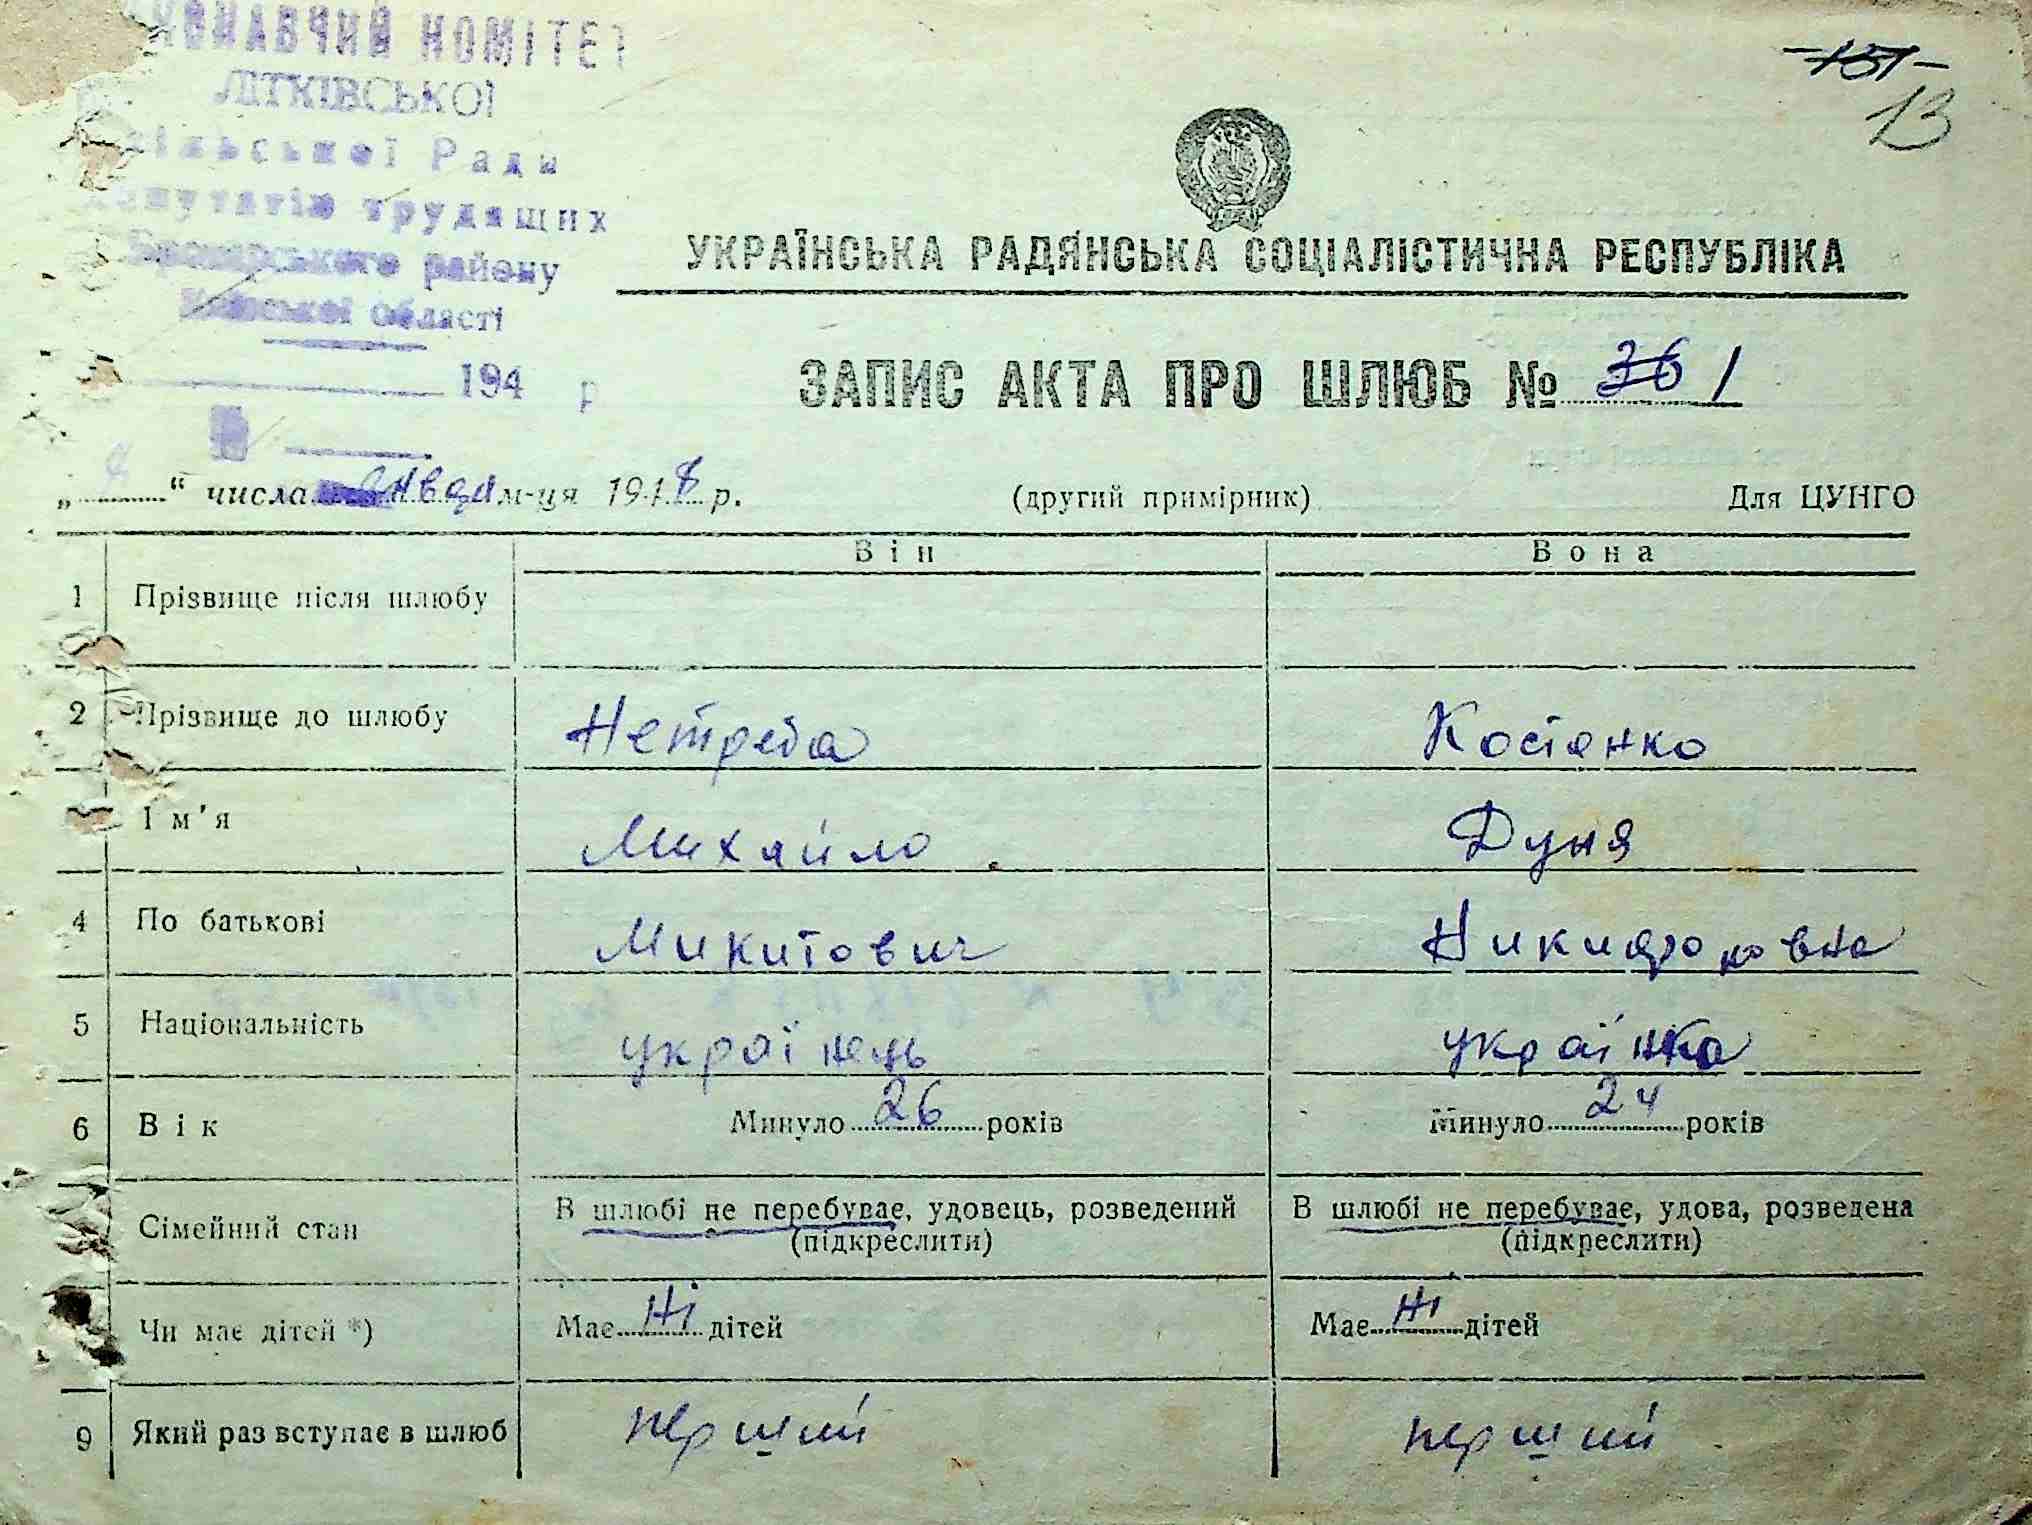 КОНАВЧИЙ КОМІТЕТ
ЛІТКІВСЬКОЇ
сільської Ради
депутатів трудящих
Броварського району
Київської області
194 р
-151-
13
УКРАЇНСЬКА РАДЯНСЬКА СОЦІАЛІСТИЧНА РЕСПУБЛІКА
ЗАПИС АКТА ПРО ШЛЮБ № 36 1
„ “ числа м-ця 1948 р.
(другий примірник)
Для ЦУНГО
Він Вона
1 Прізвище після шлюбу
2 Прізвище до шлюбу Нетреба Костенко
Ім'я Михайло Дуня
4 По батькові Микитович
5 Національність українець українка
6 Вік Минуло 26 років Минуло 24 років
Сімейний стан В шлюбі не перебуває, удовець, розведений В шлюбі не перебуває, удова, розведена
(підкреслити) (підкреслити)
Чи має дітей *) Має Ні дітей Має Ні дітей
9 Який раз вступає в шлюб перший перший